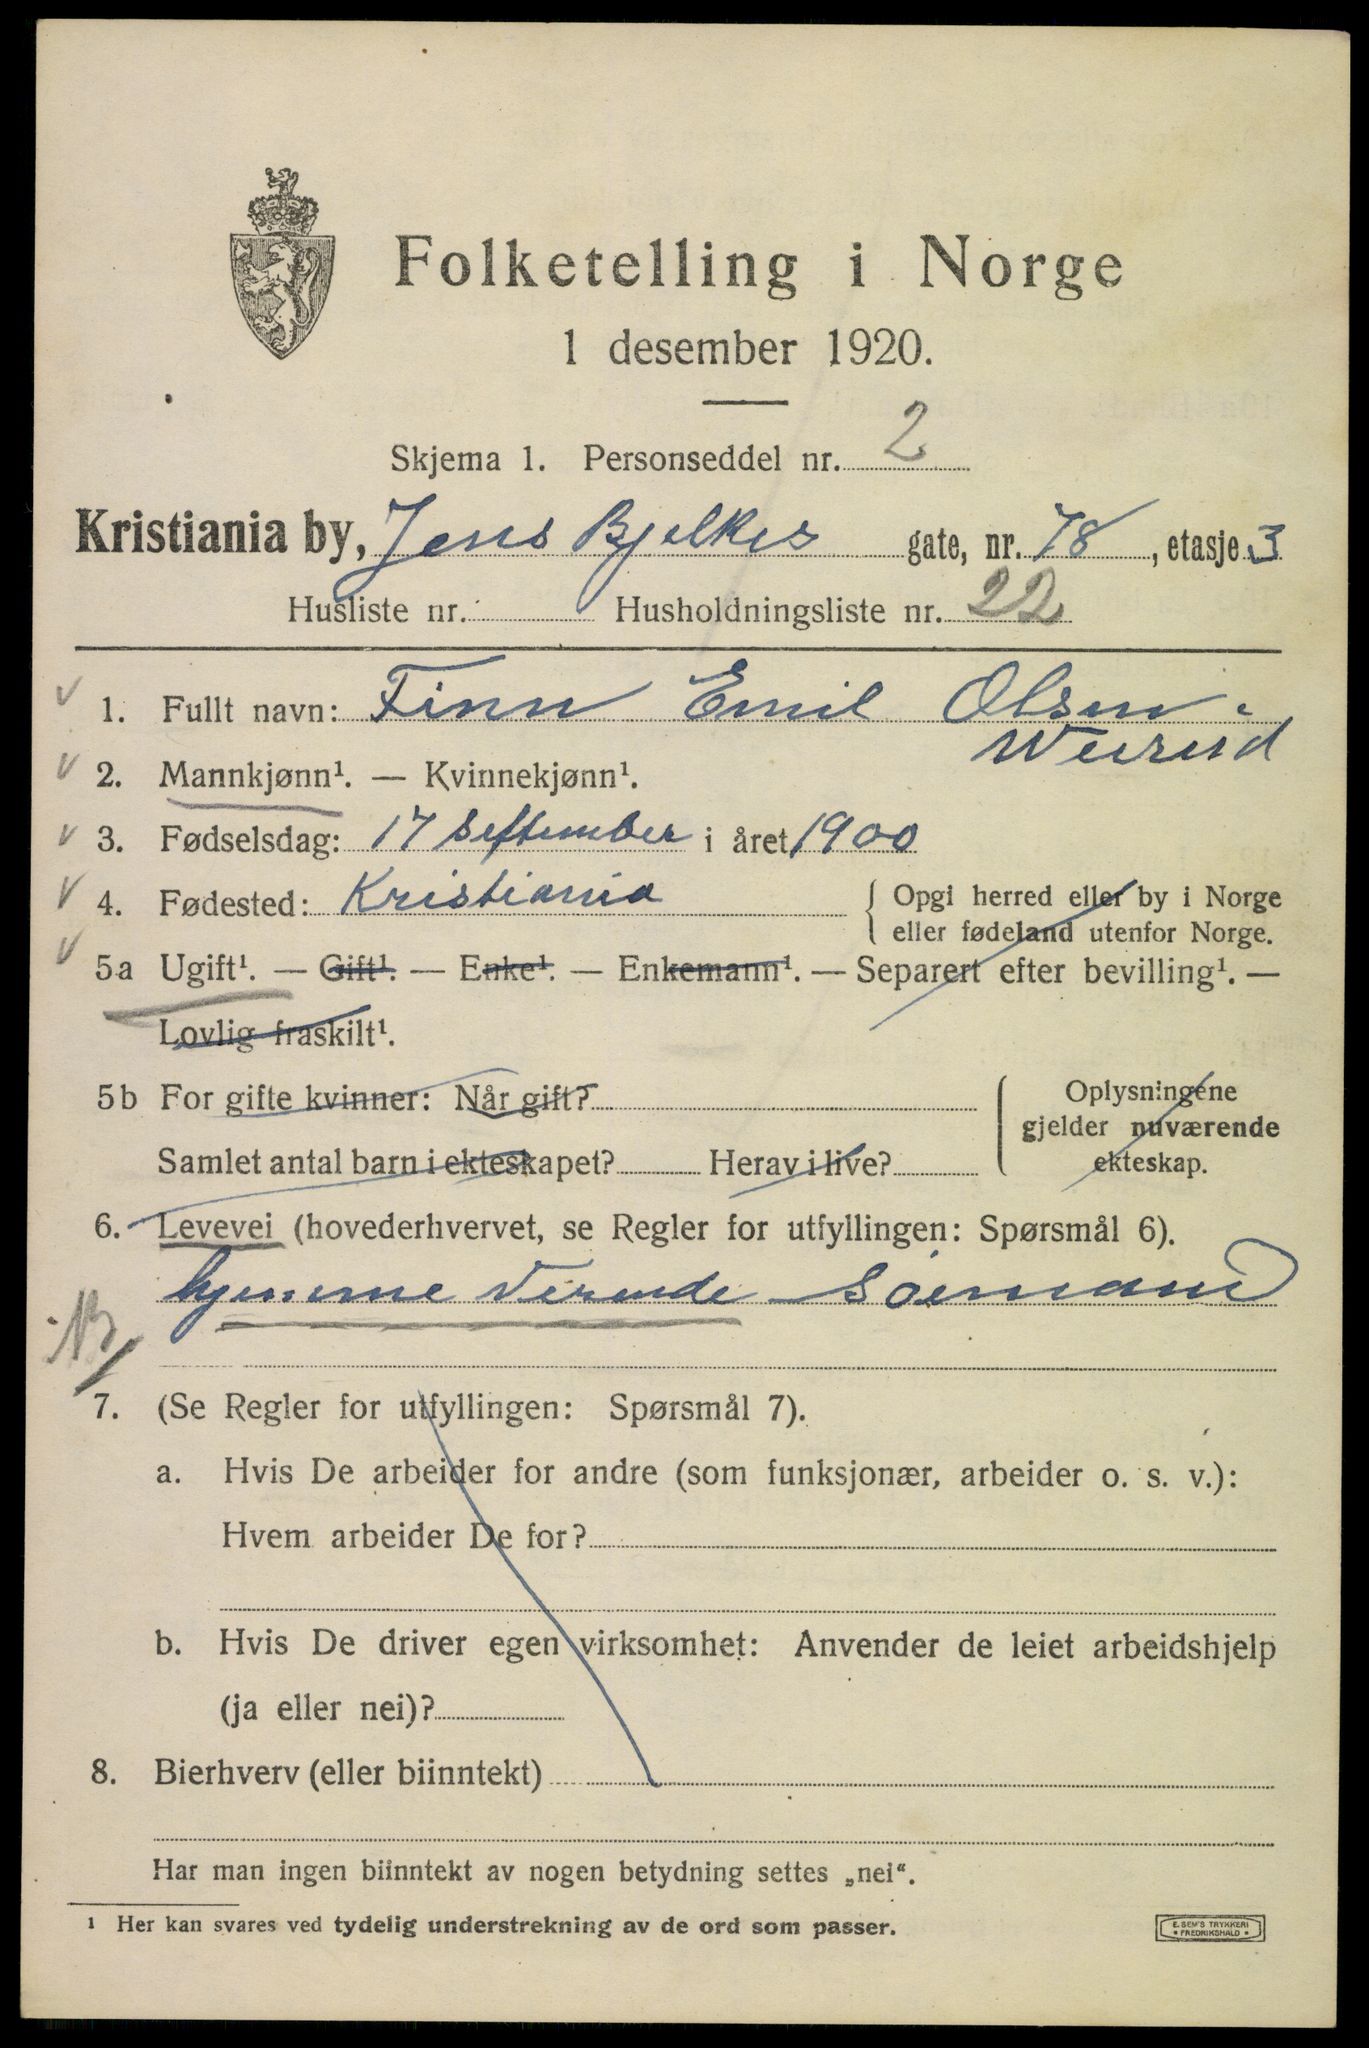 Folketelling i Norge
1 desember 1920.
Skjema 1. Personseddel nr. 2
Kristiania by, Jens Bjelkes gate, nr. 78, etasje 3
Husliste nr. Husholdningsliste nr. 22
1. Fullt navn: Finn Emil Olsen
2. Mannkjønn¹. — Kvinnekjønn¹.
3. Fødselsdag: 17 September i året 1900
4. Fødested: Kristiania { Opgi herred eller by i Norge
eller fødeland utenfor Norge.
5a Ugift¹. — Gift¹. — Enke¹. — Enkemann¹. — Separert efter bevilling¹. —
Lovlig fraskilt¹.
5b For gifte kvinner: Når gift? { Oplysningene
gjelder nuværende
Samlet antal barn i ekteskapet? Herav i live? ekteskap.
6. Levevei (hovederhvervet, se Regler for utfyllingen: Spørsmål 6).
hjemme Verende Sømand
7. (Se Regler for utfyllingen: Spørsmål 7).
a. Hvis De arbeider for andre (som funksjonær, arbeider o. s. v.):
Hvem arbeider De for?
b. Hvis De driver egen virksomhet: Anvender de leiet arbeidshjelp
(ja eller nei)?
8. Bierhverv (eller biinntekt)
Har man ingen biinntekt av nogen betydning settes „nei“.
1 Her kan svares ved tydelig understrekning av de ord som passer.
E. SEM'S TRYKKERI
* FREDRIKSHALD *